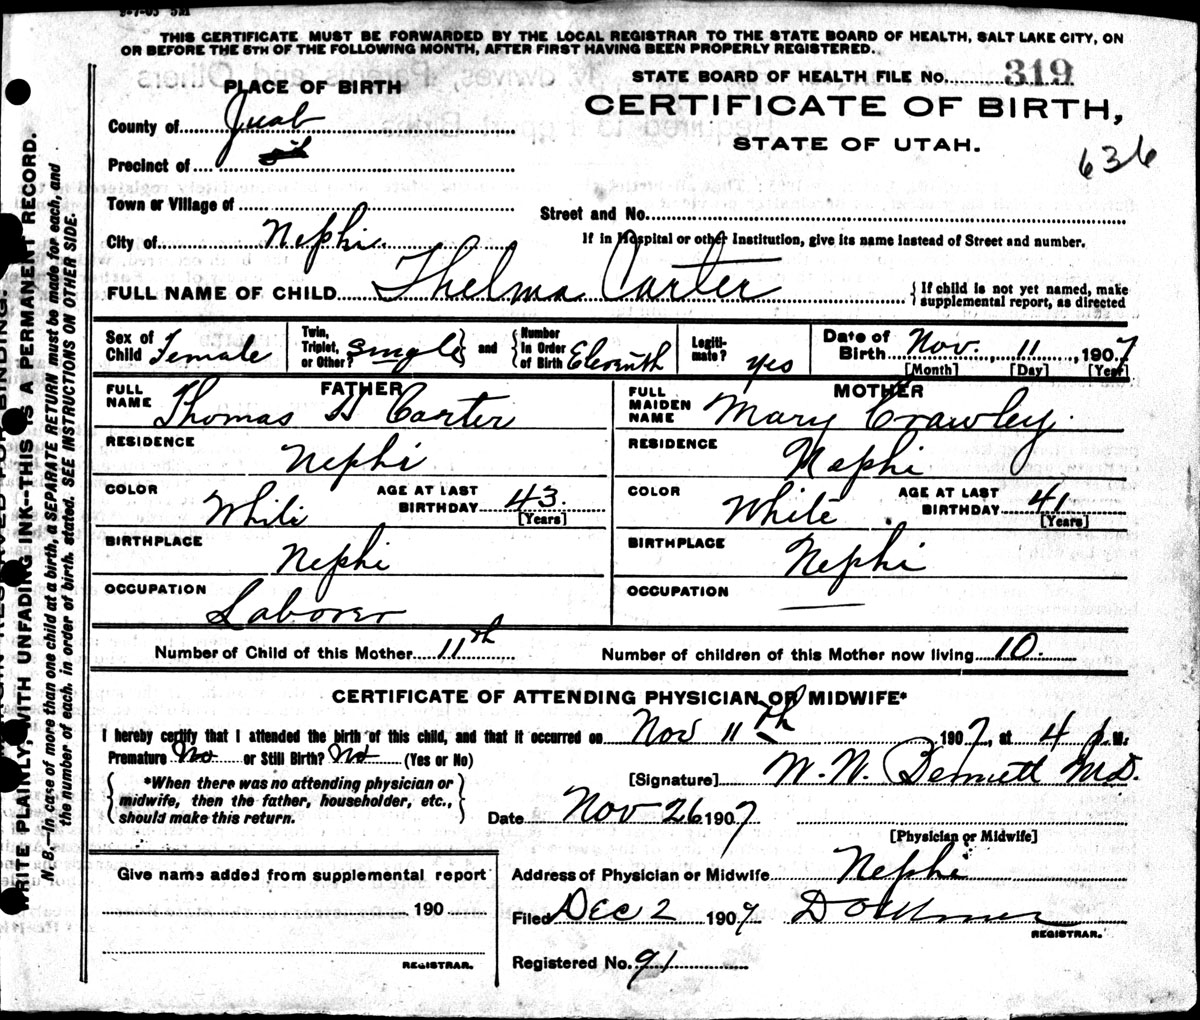 9-7-05 5M
THIS CERTIFICATE MUST BE FORWARDED BY THE LOCAL REGISTRAR TO THE STATE BOARD OF HEALTH, SALT LAKE CITY, ON
OR BEFORE THE 5TH OF THE FOLLOWING MONTH, AFTER FIRST HAVING BEEN PROPERLY REGISTERED.
STATE BOARD OF HEALTH FILE No. 319
PLACE OF BIRTH
CERTIFICATE OF BIRTH,
STATE OF UTAH.
636
County of Juab
Precinct of
Town or Village of
Street and No.
City of Nephi
If in Hospital or other Institution, give its name instead of Street and number.
FULL NAME OF CHILD Thelma Carter { If child is not yet named, make supplemental report, as directed
Sex of Child Female
Twin, Triplet, or Other? Single and Number In Order of Birth Eleventh
Legiti-mate? yes
Date of Birth Nov. 11, 1907
[Month] [Day] [Year]
FATHER
FULL NAME Thomas H Carter
RESIDENCE Nephi
COLOR White AGE AT LAST BIRTHDAY 43. [Years]
BIRTHPLACE Nephi
OCCUPATION Laborer
MOTHER
FULL MAIDEN NAME Mary Crawley.
RESIDENCE Nephi
COLOR White. AGE AT LAST BIRTHDAY 41 [Years]
BIRTHPLACE Nephi
OCCUPATION —
Number of Child of this Mother 11th
Number of children of this Mother now living 10.
CERTIFICATE OF ATTENDING PHYSICIAN OR MIDWIFE*
I hereby certify that I attended the birth of this child, and that it occurred on Nov 11th 1907, at 4 p.M.
Premature No or Still Birth? No (Yes or No)
{ *When there was no attending physician or midwife, then the father, householder, etc., should make this return. }
[Signature] W. W. Bennett M.D.
Date Nov 26 1907
[Physician or Midwife]
Give name added from supplemental report
190
REGISTRAR.
Address of Physician or Midwife Nephi
Filed Dec 2 1907
REGISTRAR.
Registered No. 91
WRITE PLAINLY, WITH UNFADING INK--THIS IS A PERMANENT RECORD.
N. B.—In case of more than one child at a birth, a SEPARATE RETURN must be made for each, and
the number of each, in order of birth, stated. SEE INSTRUCTIONS ON OTHER SIDE.